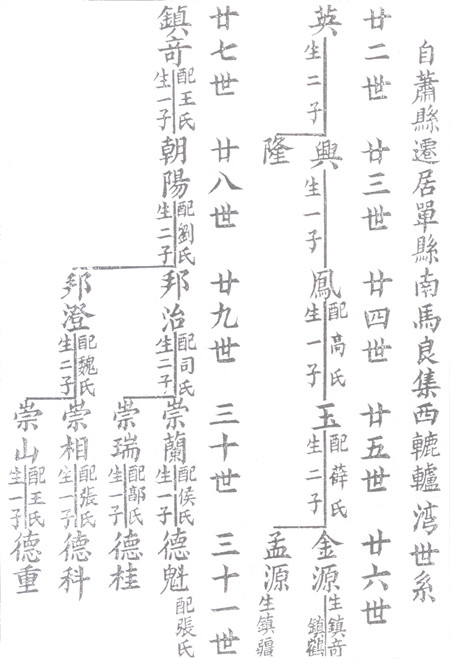 自蕭縣遷居單縣南馬良集西轆轤湾世系
廿二世
廿三世
廿四世
廿五世
廿六世
英
生二子
興
生一子
鳳
配高氏
生一子
玉
配薛氏
生二子
金源
生鎮竒
鎮鶴
隆
孟源
生鎮疆
廿七世
廿八世
廿九世
三十世
三十一世
鎮竒
配王氏
生一子
朝陽
配劉氏
生二子
邦治
配司氏
生二子
崇蘭
配侯氏
生一子
德魁
配張氏
崇瑞
配鄗氏
生一子
德桂
邦澄
配魏氏
生二子
崇相
配張氏
生一子
德科
崇山
配王氏
生一子
德重